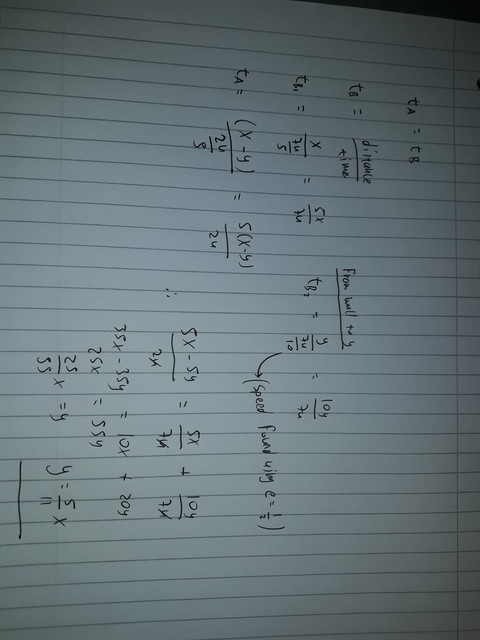 tA = tB
tB = distance / time
tB₁ = x / (7u/5) = 5x / 7u
From wall to y
tB₂ = y / (7u/10) = 10y / 7u
(speed found using e = 1/2)
tA = (x - y) / (2u/5) = 5(x-y) / 2u
∴ 5x - 5y / 2u = 5x / 7u + 10y / 7u
35x - 35y = 10x + 20y
25x = 55y
25/55 x = y
y = 5/11 x